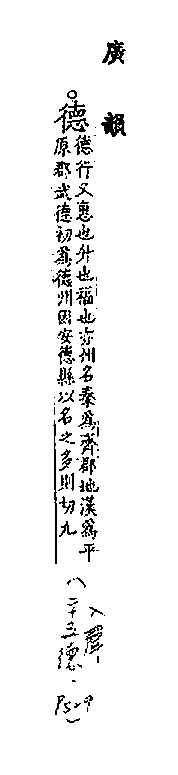 廣韻
○德
德行又惠也升也福也亦州名秦為齊郡地漢為平
原郡武德初為德州因安德縣以名之多則切九
(入聲
二十五德.
P529)